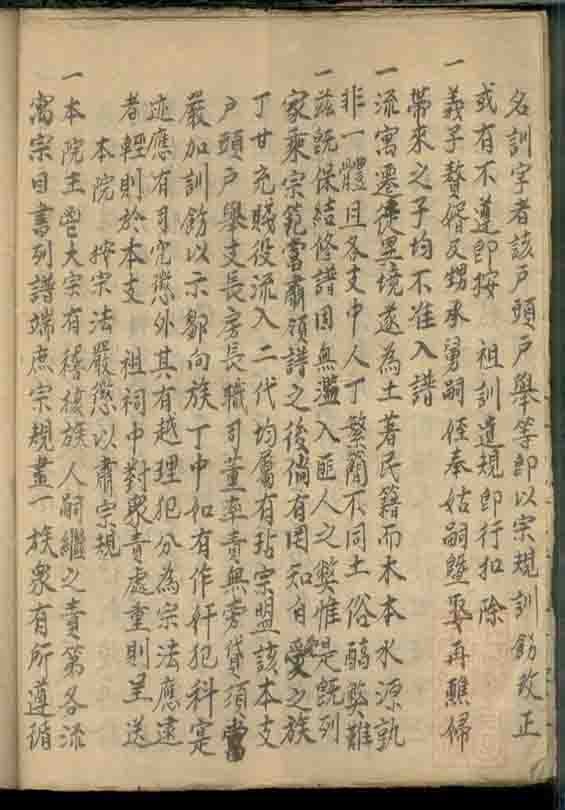 名訓字者該戶頭戶舉等即以宗規訓飭改正
或有不遵即按　祖訓遺規即行扣除
一義子贅婿及甥承舅嗣侄奉姑嗣曁娶再醮婦
帶來之子均不准入譜
一流寓遷徙異境遂為土著民籍而木本水源孰
非一體且各支中人丁繁簡不同土俗醨獘難
一茲旣保結修譜固無濫入匪人之獘惟是旣列
家乘宗範當肅領譜之後倘有罔知自愛之族
丁甘充賤役流入二代均屬有玷宗盟該本支
戶頭戶舉支長房長職司董率責無旁貸須當
嚴加訓飭以示鄒向族丁中如有作奸犯科寔
迹應有司究懲外其有越理犯分為宗法應逮
者輕則於本支　祖祠中對衆責處重則呈送
本院　按宗法嚴懲以肅宗規
一本院主鬯大宗有稽核族人嗣繼之責第各流
寓宗目書列譜端庶宗規畫一族衆有所遵循